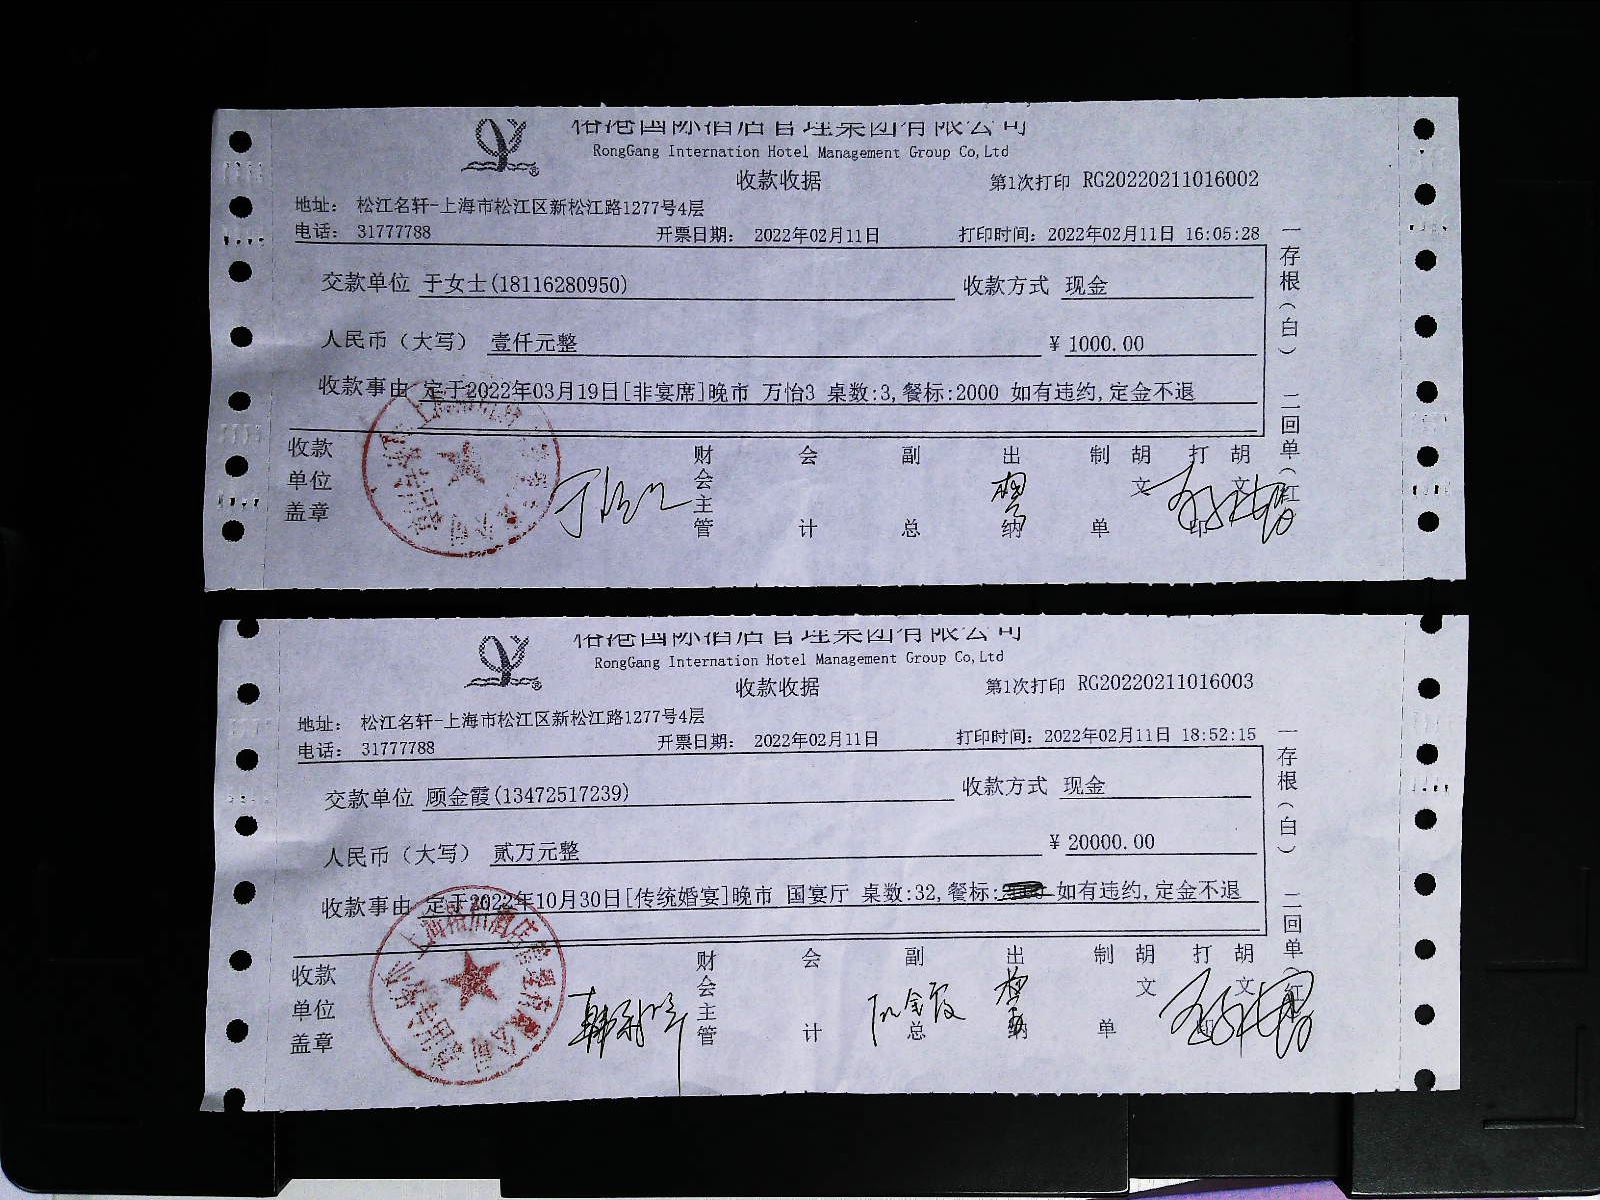 榕港国际酒店管理集团有限公司
RongGang Internation Hotel Management Group Co,Ltd
收款收据
第1次打印 RG20220211016002
地址: 松江名轩-上海市松江区新松江路1277号4层
电话: 31777788 开票日期: 2022年02月11日 打印时间: 2022年02月11日 16:05:28
交款单位 于女士(18116280950) 收款方式 现金
人民币（大写） 壹仟元整 ¥ 1000.00
收款事由 定于2022年03月19日[非宴席]晚市 万怡3 桌数:3,餐标:2000 如有违约,定金不退
收款单位盖章 财会主管 会计 副总 出纳 制单 胡文 打印 胡文
一存根（白） 二回单（红
榕港国际酒店管理集团有限公司
RongGang Internation Hotel Management Group Co,Ltd
收款收据
第1次打印 RG20220211016003
地址: 松江名轩-上海市松江区新松江路1277号4层
电话: 31777788 开票日期: 2022年02月11日 打印时间: 2022年02月11日 18:52:15
交款单位 顾金霞(13472517239) 收款方式 现金
人民币（大写） 贰万元整 ¥ 20000.00
收款事由 定于2022年10月30日[传统婚宴]晚市 国宴厅 桌数:32,餐标: 如有违约,定金不退
收款单位盖章 财会主管 会计 副总 出纳 制单 胡文 打印 胡文
一存根（白） 二回单（红